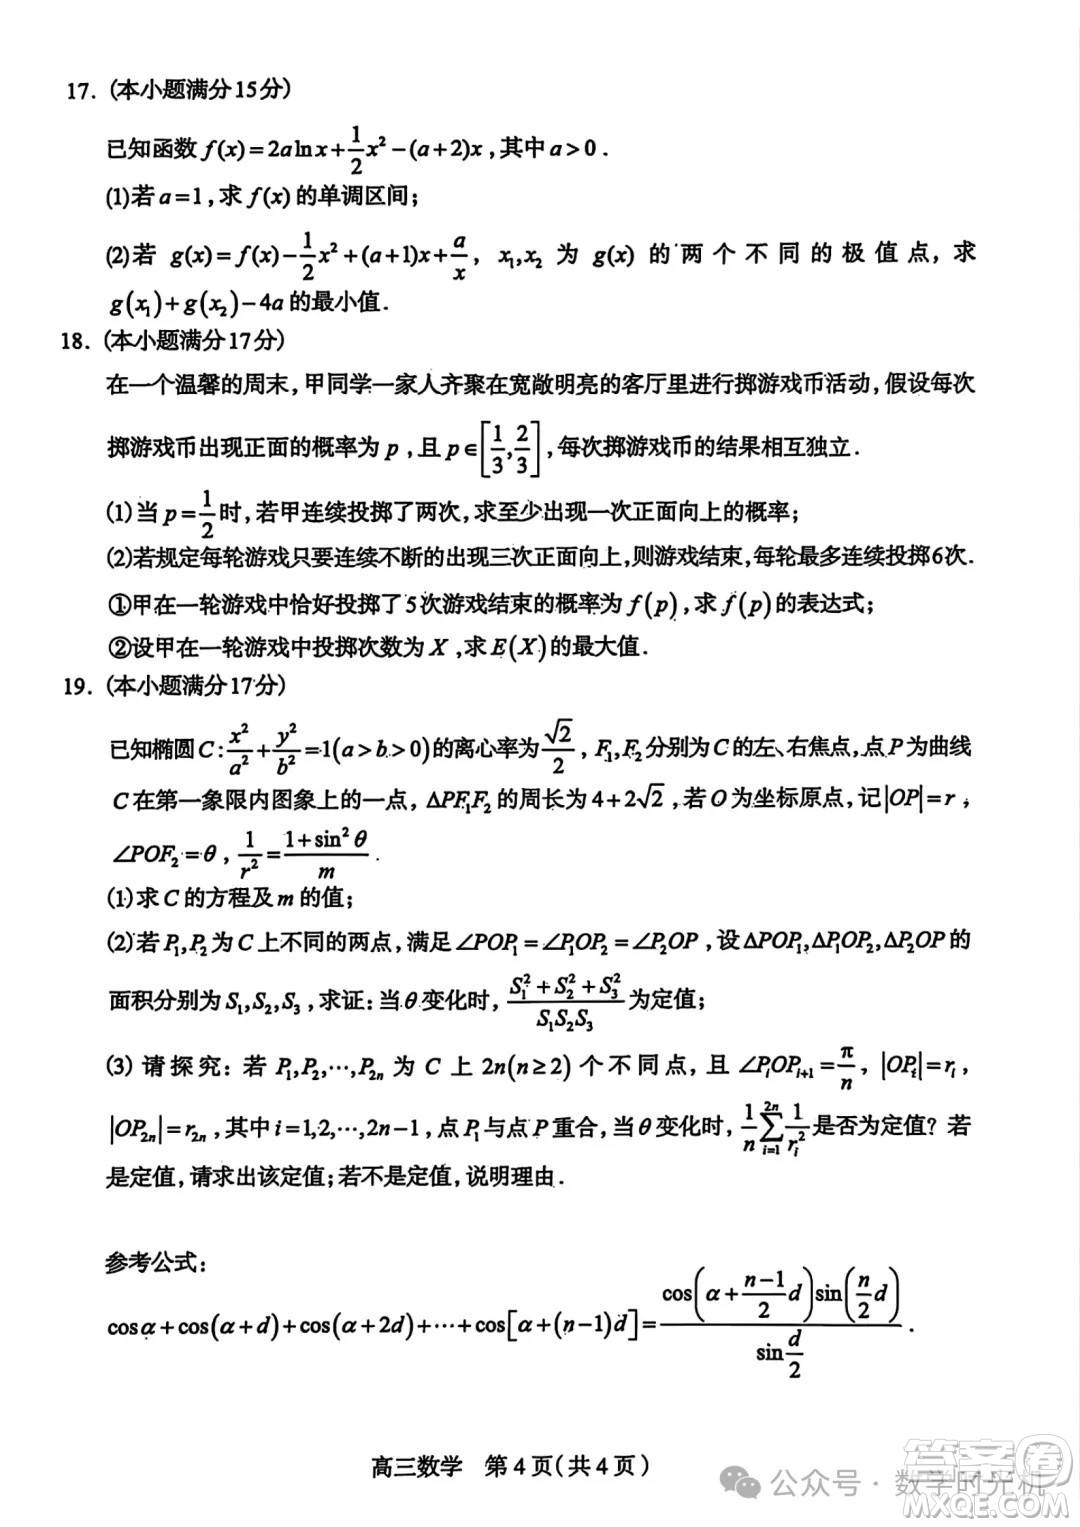 17. (本小题满分15分)
已知函数 f(x)=2alnx+\frac{1}{2}x²-(a+2)x,其中a>0.
(1)若a=1,求f(x)的单调区间;
(2)若 g(x)=f(x)-\frac{1}{2}x²+(a+1)x+\frac{a}{x}, x₁,x₂ 为 g(x) 的两个不同的极值点,求
g(x₁)+g(x₂)-4a的最小值.
18. (本小题满分17分)
在一个温馨的周末,甲同学一家人齐聚在宽敞明亮的客厅里进行掷游戏币活动,假设每次
掷游戏币出现正面的概率为p,且p∈[\frac{1}{3},\frac{2}{3}],每次掷游戏币的结果相互独立.
(1)当p=\frac{1}{2}时,若甲连续投掷了两次,求至少出现一次正面向上的概率;
(2)若规定每轮游戏只要连续不断的出现三次正面向上,则游戏结束,每轮最多连续投掷6次.
①甲在一轮游戏中恰好投掷了5次游戏结束的概率为f(p),求f(p)的表达式;
②设甲在一轮游戏中投掷次数为X,求E(X)的最大值.
19. (本小题满分17分)
已知椭圆C:\frac{x²}{a²}+\frac{y²}{b²}=1(a>b>0)的离心率为\frac{√2}{2},F₁,F₂分别为C的左、右焦点,点P为曲线
C在第一象限内图象上的一点,ΔPF₁F₂的周长为4+2√2,若O为坐标原点,记|OP|=r,
∠POF₂=θ,\frac{1}{r²}=\frac{1+sin²θ}{m}.
(1)求C的方程及m的值;
(2)若P₁,P₂为C上不同的两点,满足∠POP₁=∠P₁OP₂=∠P₂OP,设ΔPOP₁,ΔP₁OP₂,ΔP₂OP的
面积分别为S₁,S₂,S₃,求证:当θ变化时,\frac{S₁²+S₂²+S₃²}{S₁S₂S₃}为定值;
(3)请探究:若P₁,P₂,⋯,P₂ₙ为C上2n(n≥2)个不同点,且∠PᵢOPᵢ₊₁=\frac{π}{n},|OPᵢ|=rᵢ,
|OP₂ₙ|=r₂ₙ,其中i=1,2,⋯,2n-1,点P₁与点P重合,当θ变化时,\frac{1}{n}\sum_{i=1}^{2n}\frac{1}{rᵢ²}是否为定值?若
是定值,请求出该定值;若不是定值,说明理由.
参考公式:
cosα+cos(α+d)+cos(α+2d)+⋯+cos[α+(n-1)d]=\frac{cos(α+\frac{n-1}{2}d)sin(\frac{n}{2}d)}{sin\frac{d}{2}}.
高三数学 第4页(共4页)
公众号·数学时光机
答案圈
MXQE.COM